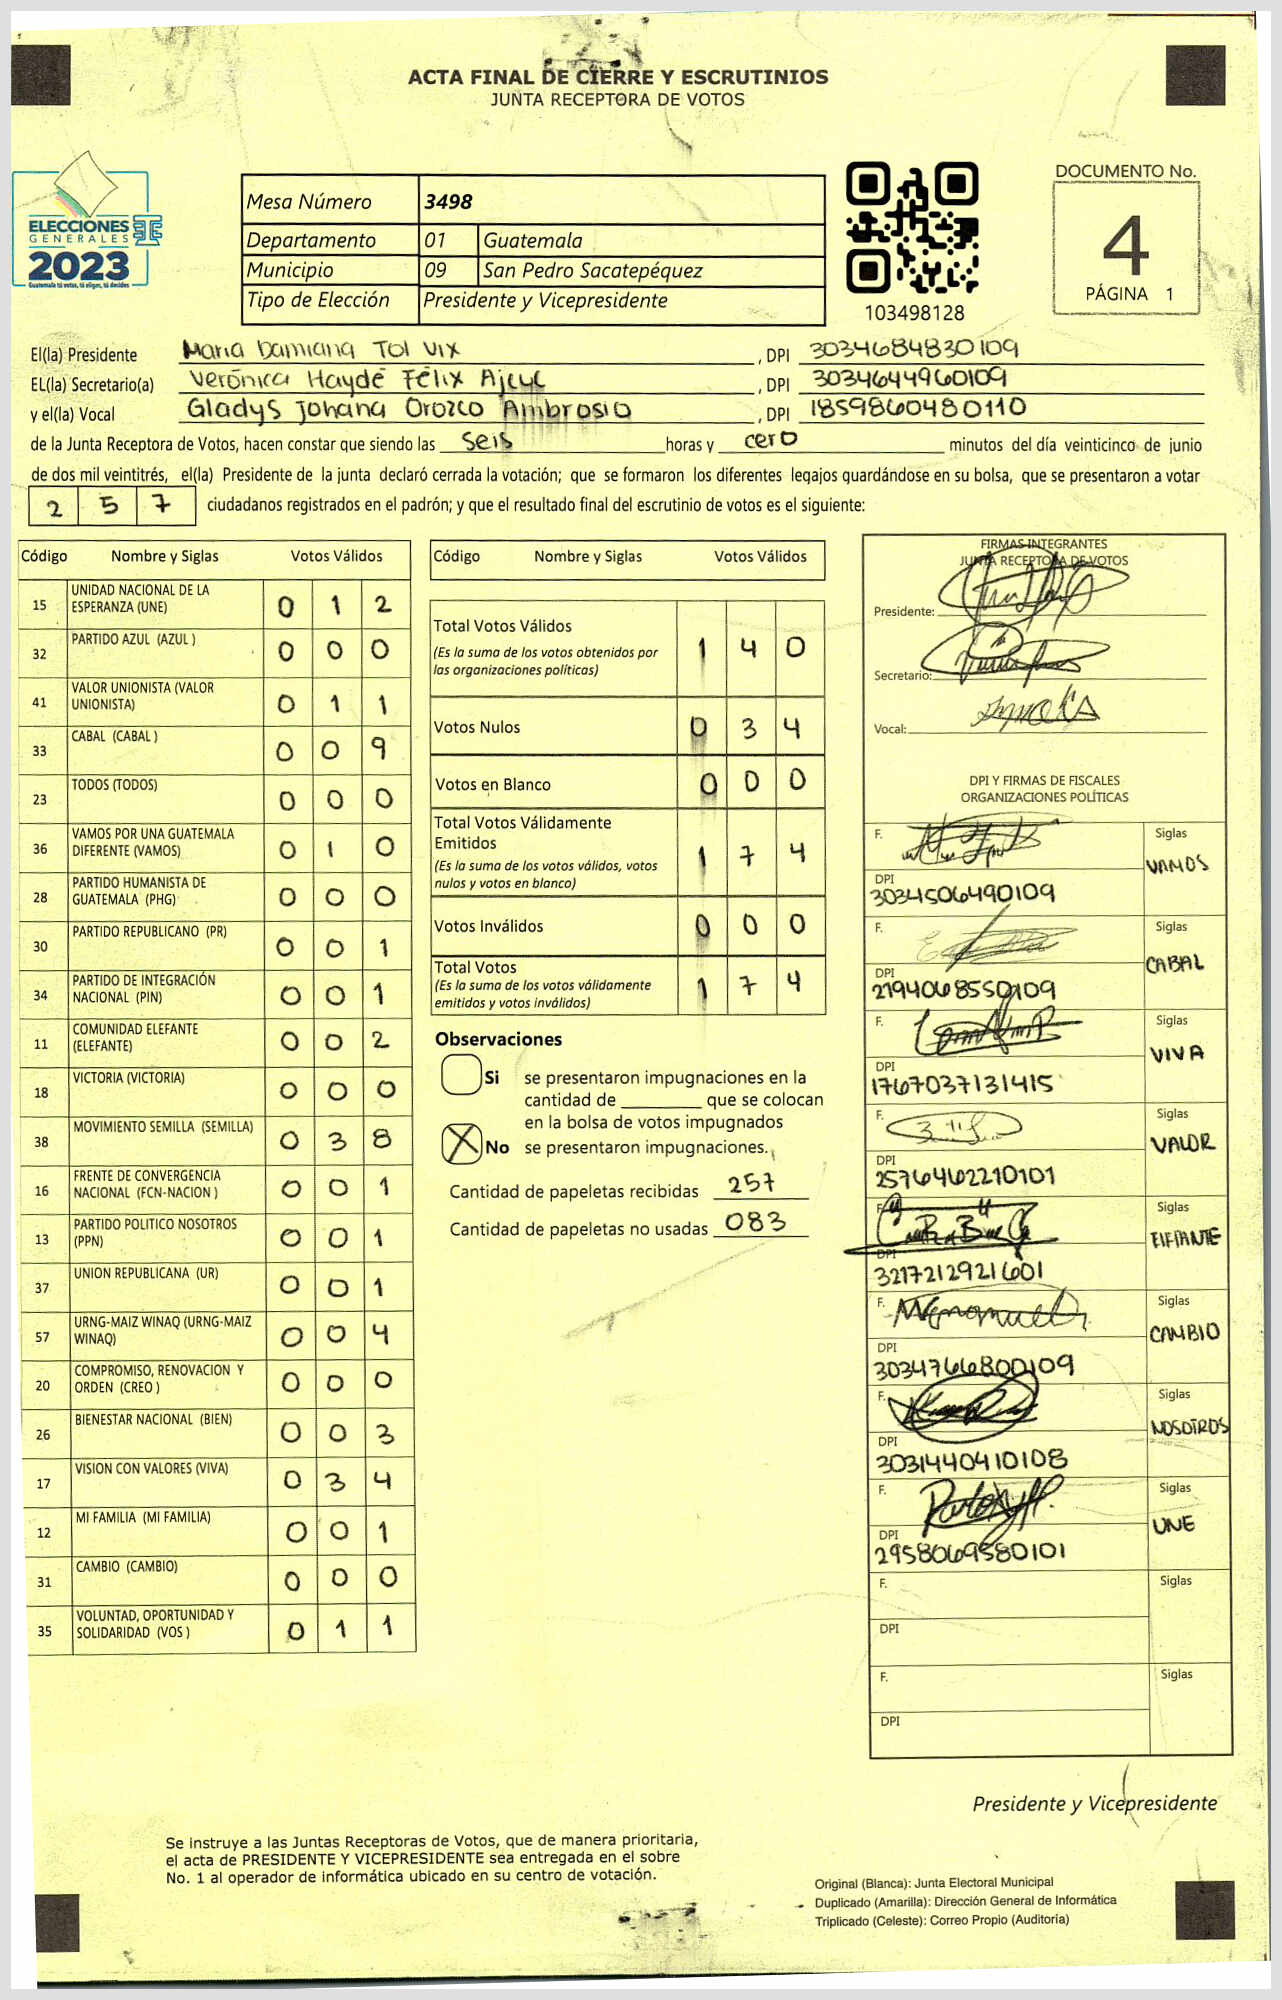 ACTA FINAL DE CIERRE Y ESCRUTINIOS
JUNTA RECEPTORA DE VOTOS
ELECCIONES
GENERALES
2023
Guatemala tú votas, tú eliges, tú decides
Mesa Número 3498
Departamento 01 Guatemala
Municipio 09 San Pedro Sacatepéquez
Tipo de Elección Presidente y Vicepresidente
103498128
DOCUMENTO No.
4
PÁGINA 1
El(la) Presidente Maria Damiana Tol Vix , DPI 3034684830109
EL(la) Secretario(a) Verónica Haydé Félix Ajcuc , DPI 3034644960109
y el(la) Vocal Gladys Johana Orozco Ambrosio , DPI 1859860480110
de la Junta Receptora de Votos, hacen constar que siendo las seis horas y cero minutos del día veinticinco de junio
de dos mil veintitrés, el(la) Presidente de la junta declaró cerrada la votación; que se formaron los diferentes legajos guardándose en su bolsa, que se presentaron a votar
2 5 7 ciudadanos registrados en el padrón; y que el resultado final del escrutinio de votos es el siguiente:
Código Nombre y Siglas Votos Válidos
15 UNIDAD NACIONAL DE LA ESPERANZA (UNE) 0 1 2
32 PARTIDO AZUL (AZUL ) 0 0 0
41 VALOR UNIONISTA (VALOR UNIONISTA) 0 1 1
33 CABAL (CABAL ) 0 0 9
23 TODOS (TODOS) 0 0 0
36 VAMOS POR UNA GUATEMALA DIFERENTE (VAMOS) 0 1 0
28 PARTIDO HUMANISTA DE GUATEMALA (PHG) 0 0 0
30 PARTIDO REPUBLICANO (PR) 0 0 1
34 PARTIDO DE INTEGRACIÓN NACIONAL (PIN) 0 0 1
11 COMUNIDAD ELEFANTE (ELEFANTE) 0 0 2
18 VICTORIA (VICTORIA) 0 0 0
38 MOVIMIENTO SEMILLA (SEMILLA) 0 3 8
16 FRENTE DE CONVERGENCIA NACIONAL (FCN-NACION ) 0 0 1
13 PARTIDO POLITICO NOSOTROS (PPN) 0 0 1
37 UNION REPUBLICANA (UR) 0 0 1
57 URNG-MAIZ WINAQ (URNG-MAIZ WINAQ) 0 0 4
20 COMPROMISO, RENOVACION Y ORDEN (CREO ) 0 0 0
26 BIENESTAR NACIONAL (BIEN) 0 0 3
17 VISION CON VALORES (VIVA) 0 3 4
12 MI FAMILIA (MI FAMILIA) 0 0 1
31 CAMBIO (CAMBIO) 0 0 0
35 VOLUNTAD, OPORTUNIDAD Y SOLIDARIDAD (VOS ) 0 1 1
Código Nombre y Siglas Votos Válidos
Total Votos Válidos 1 4 0
(Es la suma de los votos obtenidos por
las organizaciones políticas)
Votos Nulos 0 3 4
Votos en Blanco 0 0 0
Total Votos Válidamente
Emitidos 1 7 4
(Es la suma de los votos válidos, votos
nulos y votos en blanco)
Votos Inválidos 0 0 0
Total Votos 1 7 4
(Es la suma de los votos válidamente
emitidos y votos inválidos)
Observaciones
Si se presentaron impugnaciones en la
cantidad de ________ que se colocan
en la bolsa de votos impugnados
X No se presentaron impugnaciones.
Cantidad de papeletas recibidas 257
Cantidad de papeletas no usadas 083
FIRMAS INTEGRANTES
JUNTA RECEPTORA DE VOTOS
Presidente:
Secretario:
Vocal:
DPI Y FIRMAS DE FISCALES
ORGANIZACIONES POLÍTICAS
F. Siglas VAMOS
DPI 3034506490109
F. Siglas CABAL
DPI 2194068550109
F. Siglas VIVA
DPI 1767037131415
F. Siglas VALOR
DPI 2576462210101
F. Siglas ElEFANTE
DPI 3217212921601
F. Siglas CAMBIO
DPI 3034766800109
F. Siglas NOSOTROS
DPI 3031440410108
F. Siglas UNE
DPI 2958069580101
F. Siglas
DPI
F. Siglas
DPI
Presidente y Vicepresidente
Se instruye a las Juntas Receptoras de Votos, que de manera prioritaria,
el acta de PRESIDENTE Y VICEPRESIDENTE sea entregada en el sobre
No. 1 al operador de informática ubicado en su centro de votación.
Original (Blanca): Junta Electoral Municipal
Duplicado (Amarilla): Dirección General de Informática
Triplicado (Celeste): Correo Propio (Auditoría)